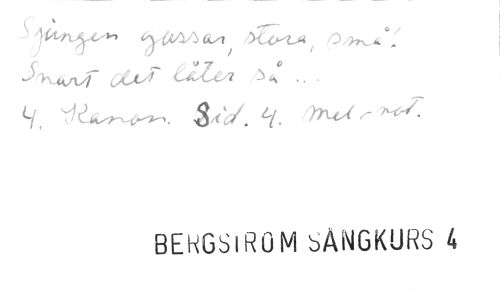 Sjungen gossar, stora, små!
Snart det låter så ...
4. Kanon. Sid. 4. Mel-not.
BERGSTRÖM SÅNGKURS 4